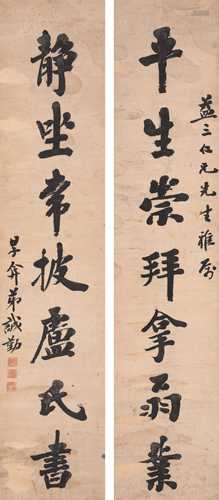 益三仁兄先生雅屬
平生崇拜拿翁業
静坐常披盧氏書
弟誠勤